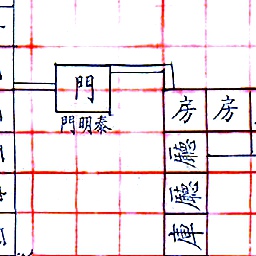 門
門明泰
房
房
廳
廳
庫